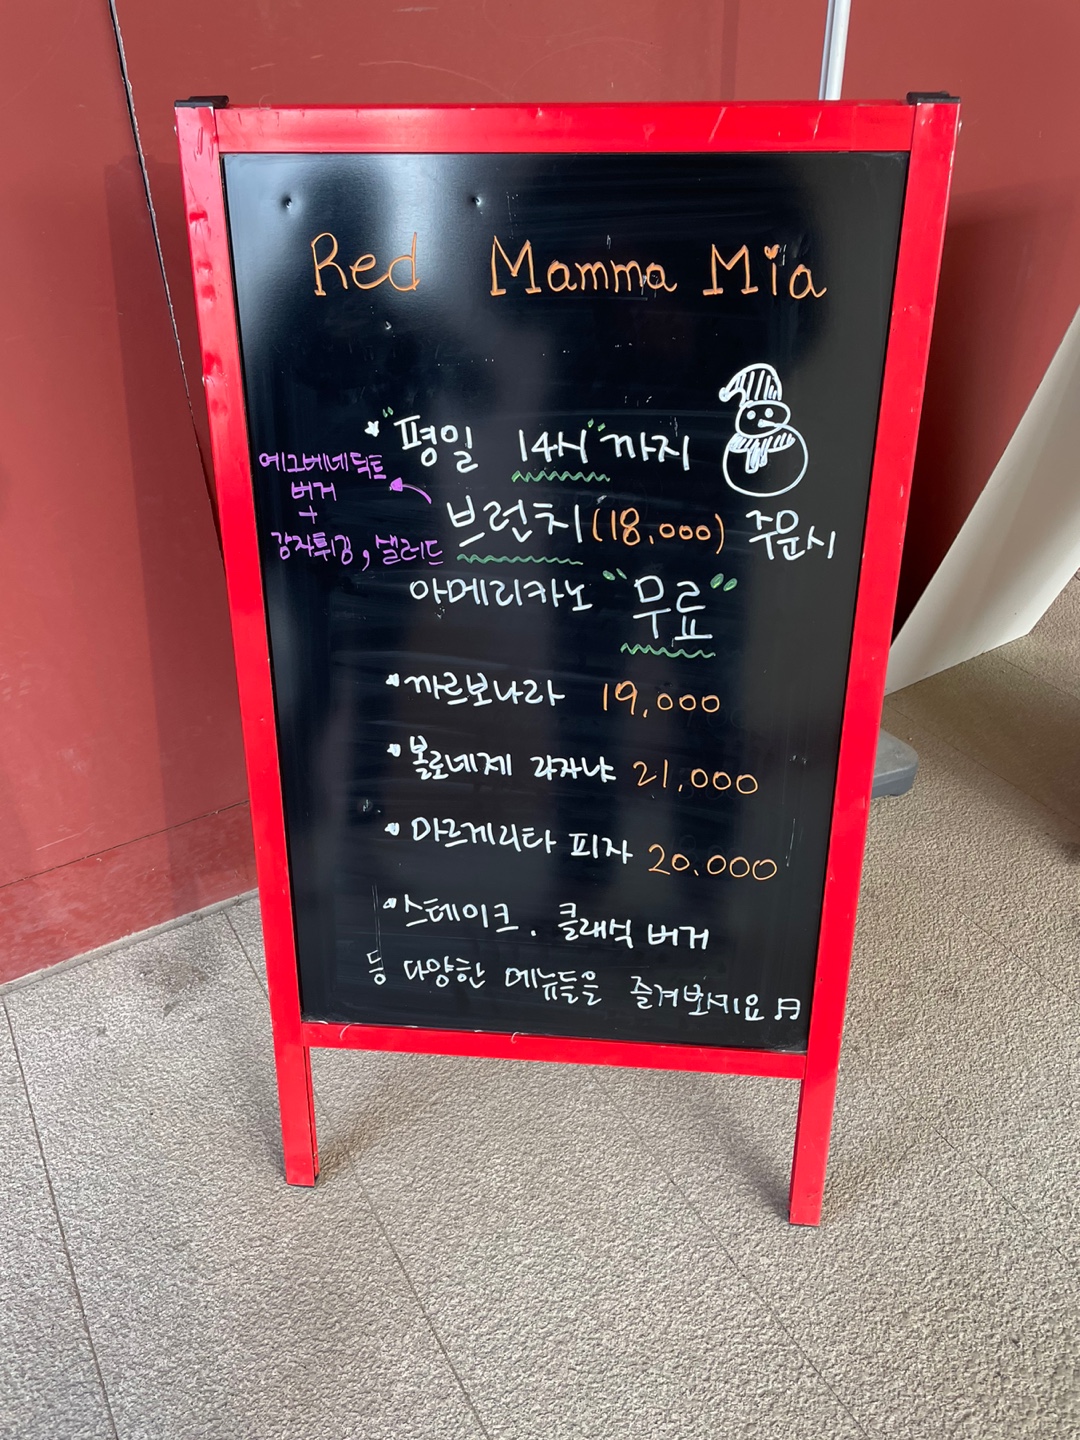 Red Mamma Mia
"평일 14시"까지
에그베네딕트
버거
+
감자튀김, 샐러드
브런치(18,000) 주문시
아메리카노 "무료"
까르보나라 19,000
볼로네제 라자냐 21,000
마르게리타 피자 20.000
스테이크. 클래식 버거
등 다양한 메뉴들을 즐겨보세요♬